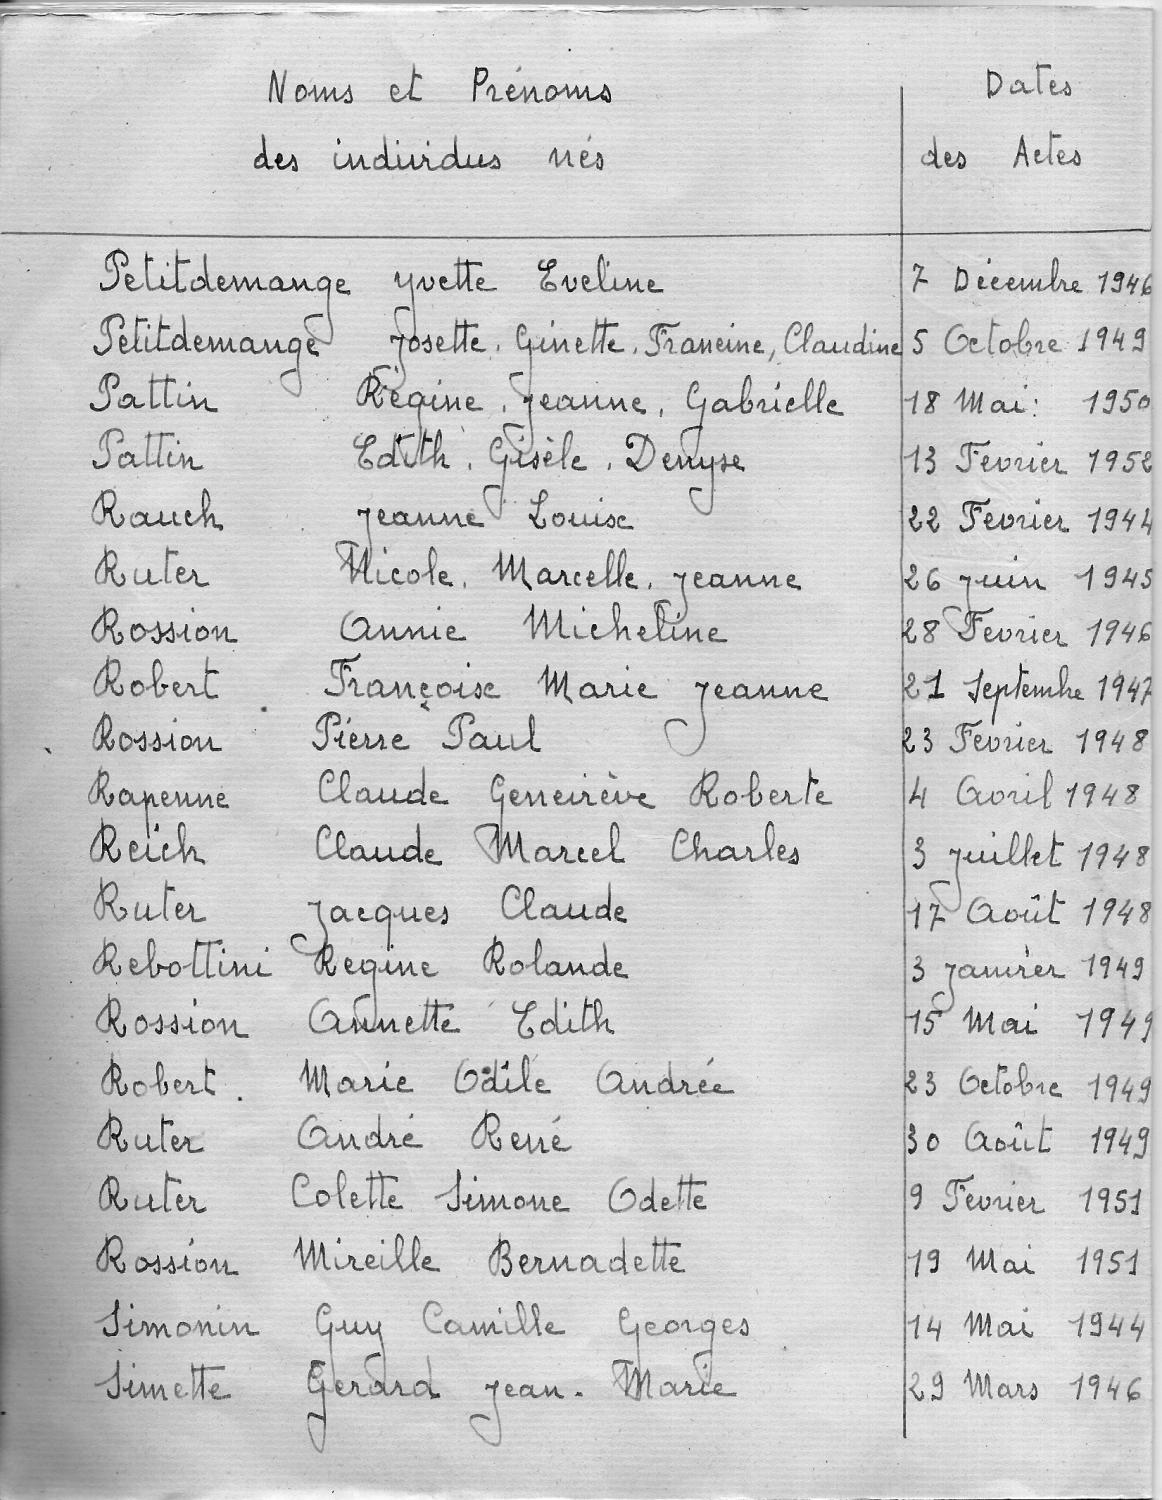 Noms et Prénoms Dates
des individus nés des Actes
Petitdemange Yvette Eveline 7 Décembre 1946
Petitdemange Josette, Ginette, Francine, Claudine 5 Octobre 1949
Pattin Régine, Jeanne, Gabrielle 18 Mai 1950
Pattin Edith, Gisèle, Denyse 13 Fevrier 1952
Rauch Jeanne Louise 22 Fevrier 1944
Ruter Nicole, Marcelle, Jeanne 26 Juin 1945
Rossion Annie Micheline 28 Fevrier 1946
Robert Françoise Marie Jeanne 21 Septembre 1947
Rossion Pierre Paul 23 Fevrier 1948
Rapenne Claude Geneviève Roberte 4 Avril 1948
Reich Claude Marcel Charles 3 Juillet 1948
Ruter Jacques Claude 17 Août 1948
Rebottini Regine Rolande 3 Janvier 1949
Rossion Annette Edith 15 Mai 1949
Robert Marie Odile Andrée 23 Octobre 1949
Ruter André René 30 Août 1949
Ruter Colette Simone Odette 9 Fevrier 1951
Rossion Mireille Bernadette 19 Mai 1951
Simonin Guy Camille Georges 14 Mai 1944
Simette Gerard Jean-Marie 29 Mars 1946